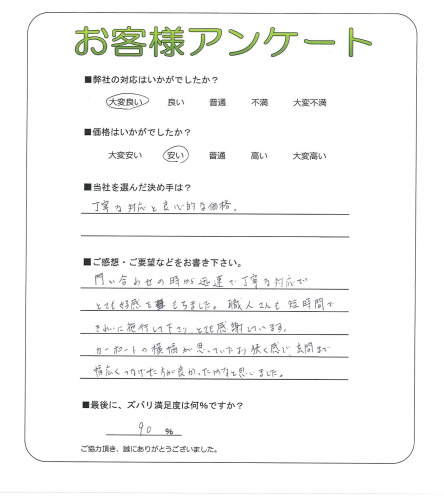 お客様アンケート
■弊社の対応はいかがでしたか？
大変良い 良い 普通 不満 大変不満
■価格はいかがでしたか？
大変安い 安い 普通 高い 大変高い
■当社を選んだ決め手は？
丁寧な対応と良心的な価格。
■ご感想・ご要望などをお書き下さい。
問い合わせの時から迅速で丁寧な対応で
とても好感をもちました。職人さんも短時間で
きれいに施行して下さりとても感謝しています。
カーポートの横幅が思っていたより狭く感じ玄関まで
幅広くつなげた方が良かったかなと思いました。
■最後に、ズバリ満足度は何％ですか？
90 ％
ご協力頂き、誠にありがとうございました。